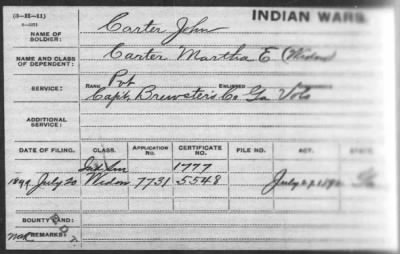 (3-21-11)
INDIAN WARS
NAME OF SOLDIER: Carter John
NAME AND CLASS OF DEPENDENT: Carter Martha E (Widow)
SERVICE: RANK Pvt ENLISTED
Capt. Brewster's Co Ga Vols
ADDITIONAL SERVICE:
DATE OF FILING. CLASS. APPLICATION No. CERTIFICATE No. FILE NO. ACT. STATE
1777
1892 July 20 Widow 7731 5548 July 27 1892 Ga
BOUNTY LAND:
REMARKS: